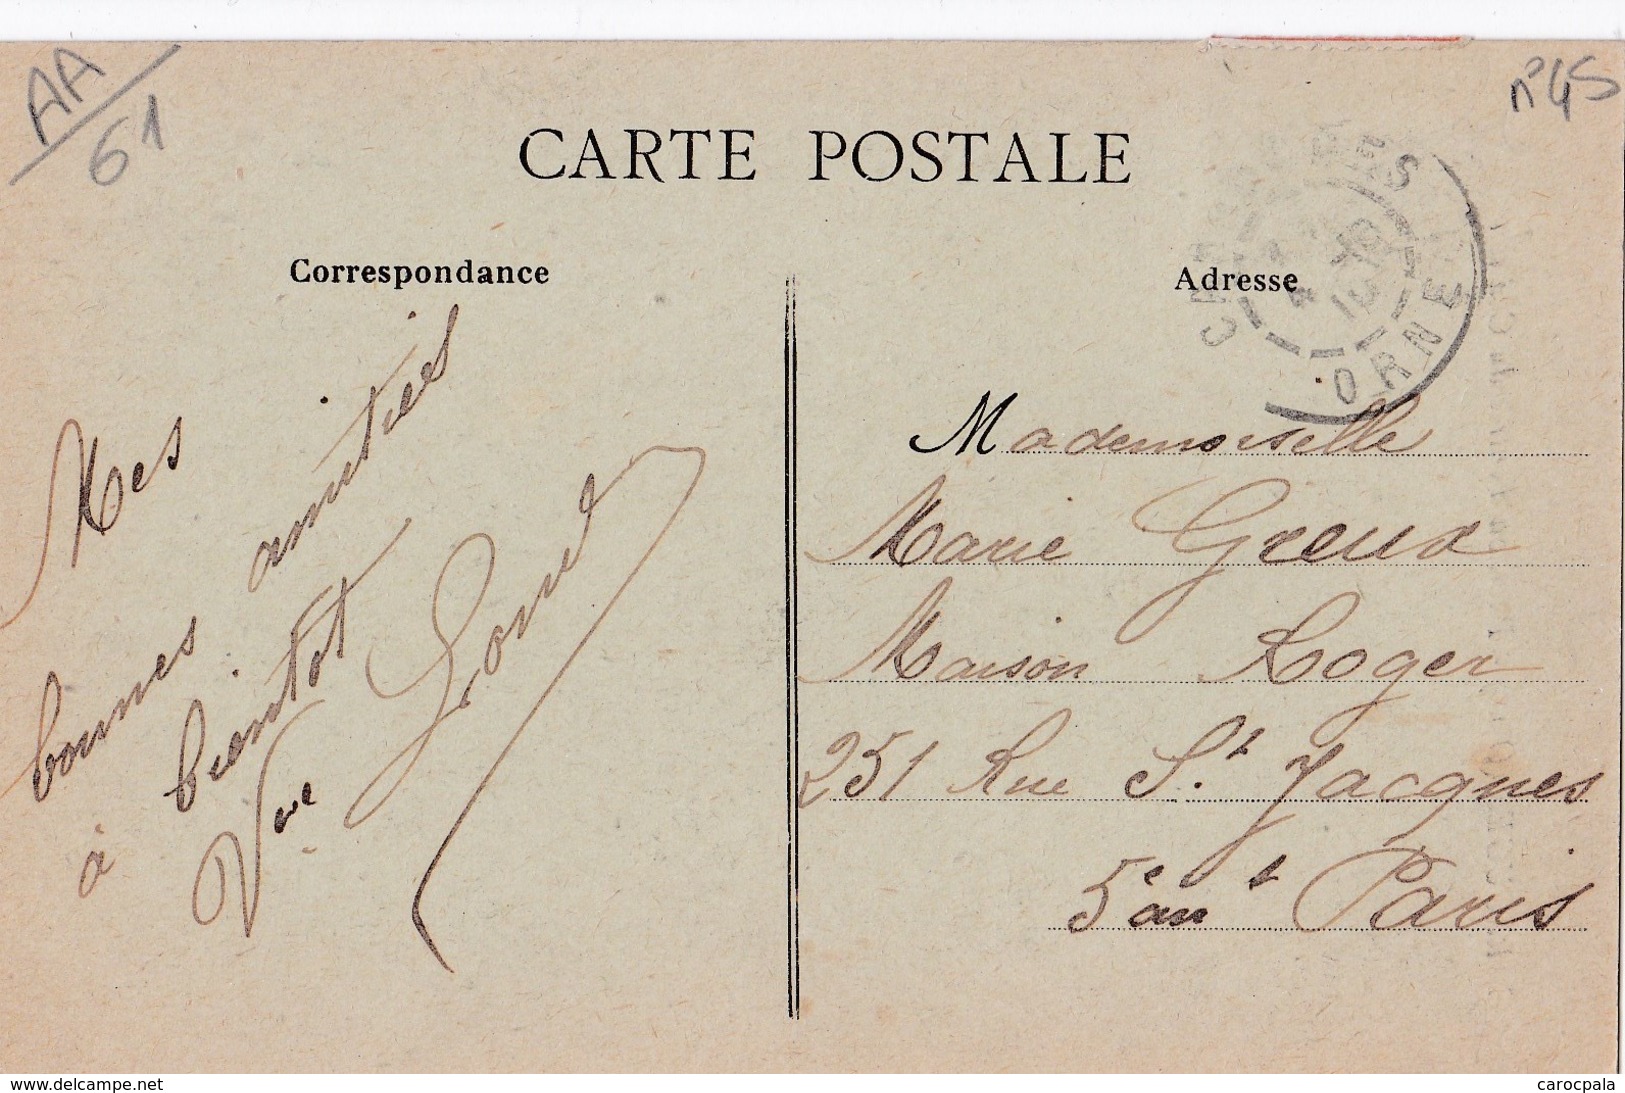 AA
61
n° 45
CARTE POSTALE
Correspondance
Adresse
ORNE
Mes
bonnes amitiés
à bientot
Vve
Mademoiselle
Marie Greux
Maison Roger
251 Rue St. Jacques
5e arrt Paris
www.delcampe.net
carocpala